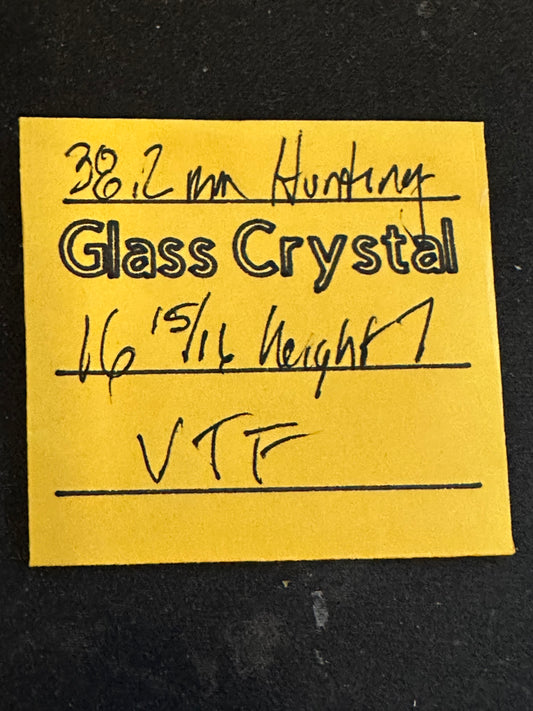 38.2 mm Hunting
Glass Crystal
16 15/16 height 1
VTF